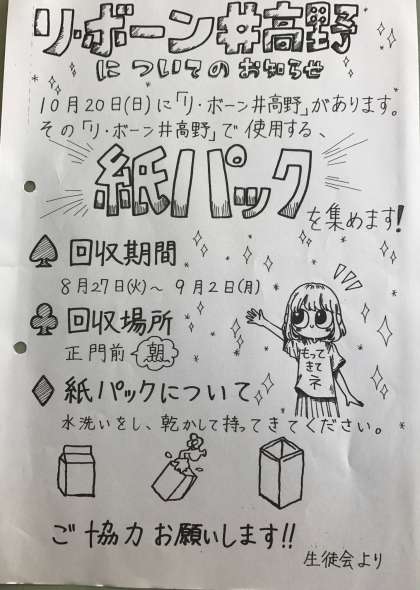 リ・ボーン井高野
についてのお知らせ
10月20日(日)に「リ・ボーン井高野」があります。
その「リ・ボーン井高野」で使用する、
紙パック
を集めます!
♠ 回収期間
8月27日(火)〜 9月2日(月)
♣ 回収場所
正門前 朝
もって
きて
ネ
♦ 紙パックについて
水洗いをし、乾かして持ってきてください。
ご協力お願いします!!
生徒会より